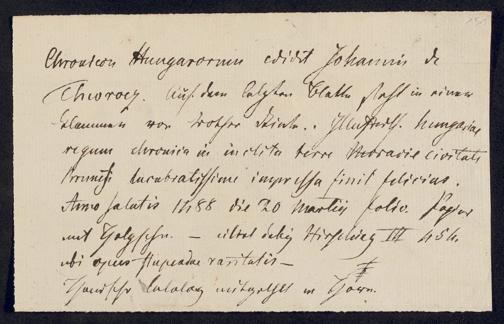 Chronicon Hungarorum edidit Johannis de
Thwrocz. Auf dem letzten Blatte steht in einer
von rother Tinte. Illustriss. hungariae
regum chronica in inclita terre Moravie civitate
Brunensi lucubratissime impressa finit felicius.
Anno salutis 1488 die 20 Martii folio.
mit Holzschn. — citirt
opus stupendae raritatis —
Catalog mitgetheilt v. Thorn.